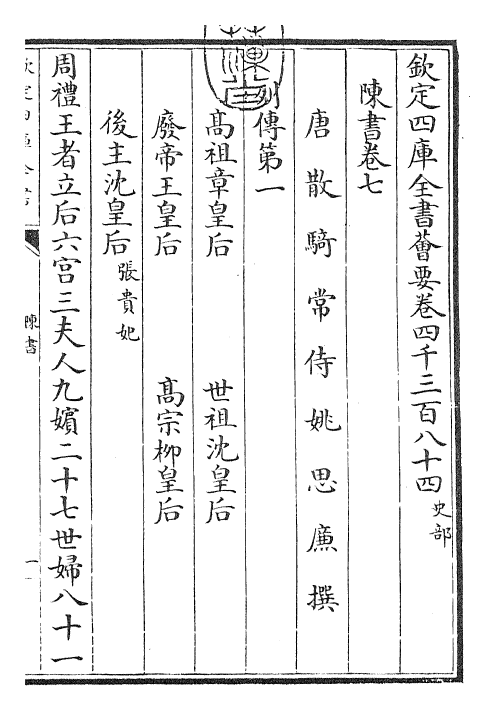 欽定四庫全書薈要卷四千三百八十四 史部
陳書卷七
唐散騎常侍姚思廉撰
列傳第一
高祖章皇后 世祖沈皇后
廢帝王皇后 高宗柳皇后
後主沈皇后 張貴妃
周禮王者立后六宮三夫人九嬪二十七世婦八十一
陳書